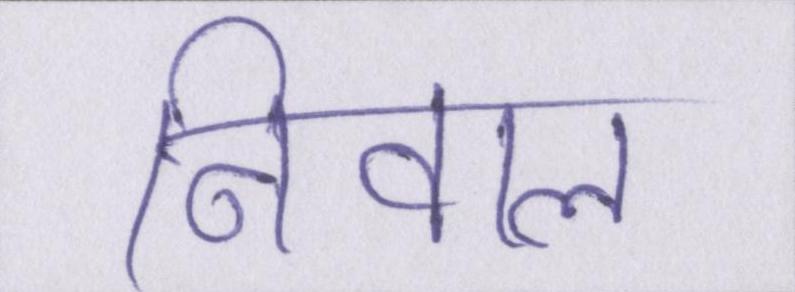 निवाल